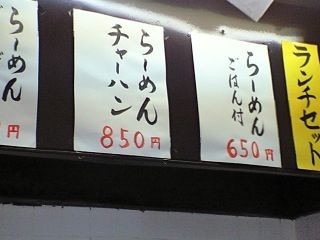 ランチセット
らーめん
ごはん付
650円
らーめん
チャーハン
850円
らーめん
円